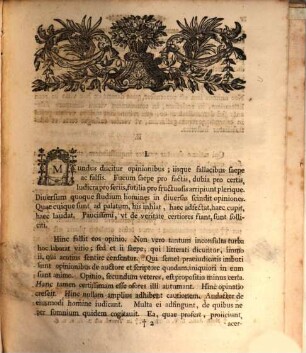 I.
Mundus ducitur opinionibus; iisque fallacibus saepe
ac falsis. Fucum saepe pro factis, dubia pro certis,
ludicra pro seriis, futilia pro fructuosis arripiunt plerique.
Diversum quoque studium homines in diversa scindit opiniones.
Quae cuique sunt ad palatum, his inhiat, haec adsectat, haec cupit,
haec laudat. Paucissimi, vt de veritate certiores fiant, sunt solli-
citi.
Hinc fallit eos opinio. Non vero tantum inconsulta turba
hoc laborat vitio; sed et ii saepe, qui litterati dicuntur, immo
ii, qui acutius sentire censentur. Qui semel praeiudiciis imbuti
sunt opinionibus de auctore et scriptore quodam, iniquiori in eum
sunt animo. Opinio, secundum veteres, est proposita minus certa.
Hanc tamen certissimam esse osores illi autumant. Hinc opinatio
crescit. Hinc nullam amplius adhibent cautionem. Audacter de
eiusmodi homine iudicant. Multa ei adfingunt, de quibus ne
per somnium quidem cogitauit. Ea, quae profert, proiiciunt,
† 2 acer-